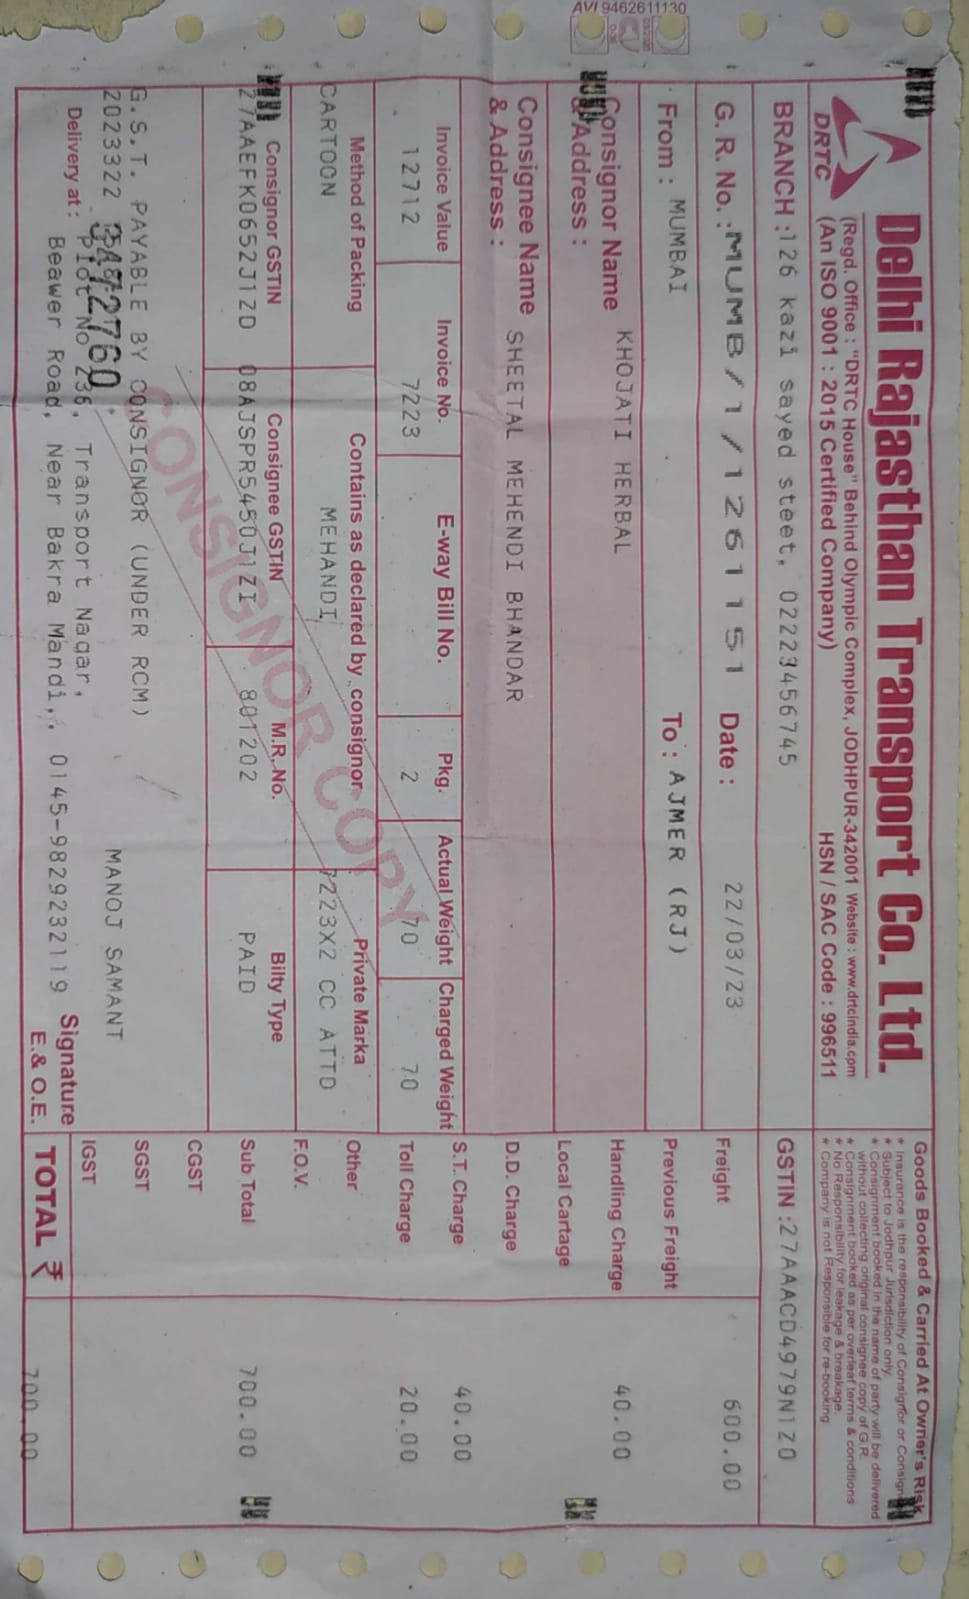 AVI 9462611130
DRTC
Delhi Rajasthan Transport Co. Ltd.
(Regd. Office : "DRTC House" Behind Olympic Complex, JODHPUR-342001 Website : www.drtcindia.com
(An ISO 9001 : 2015 Certified Company) HSN / SAC Code : 996511
Goods Booked & Carried At Owner's Risk
* Insurance is the responsibility of Consignor or Consign
* Subject to Jodhpur Jurisdiction only.
* Consignment booked in the name of party will be delivered
without collecting original consignee copy of G.R.
* Consignment booked as per overleaf terms & conditions
* No Responsibility for leakage & breakage.
* Company is not Responsible for re-booking
BRANCH :126 kazi sayed steet, 02223456745
GSTIN :27AAACD4979N1Z0
G. R. No. :MUMB/1/1261151 Date : 22/03/23
Freight 600.00
From : MUMBAI To : AJMER (RJ)
Previous Freight
Consignor Name KHOJATI HERBAL
& Address :
Handling Charge 40.00
Local Cartage
Consignee Name SHEETAL MEHENDI BHANDAR
& Address :
D.D. Charge
S.T. Charge 40.00
Invoice Value Invoice No. E-way Bill No. Pkg. Actual Weight Charged Weight
12712 7223 2 70 70
Toll Charge 20.00
Method of Packing Contains as declared by consignor Private Marka
CARTOON MEHANDI 7223X2 CC ATTD
Other
F.O.V.
Consignor GSTIN Consignee GSTIN M.R. No. Bilty Type
27AAEFK0652J1ZD 08AJSPR5450J1ZI 801202 PAID
Sub Total 700.00
CONSIGNOR COPY
CGST
G.S.T. PAYABLE BY CONSIGNOR (UNDER RCM)
SGST
2023322 3472760 MANOJ SAMANT
IGST
Delivery at : Plot No 236, Transport Nagar,
Beawer Road, Near Bakra Mandi,. 0145-9829232119
Signature
E.& O.E.
TOTAL ₹ 700.00